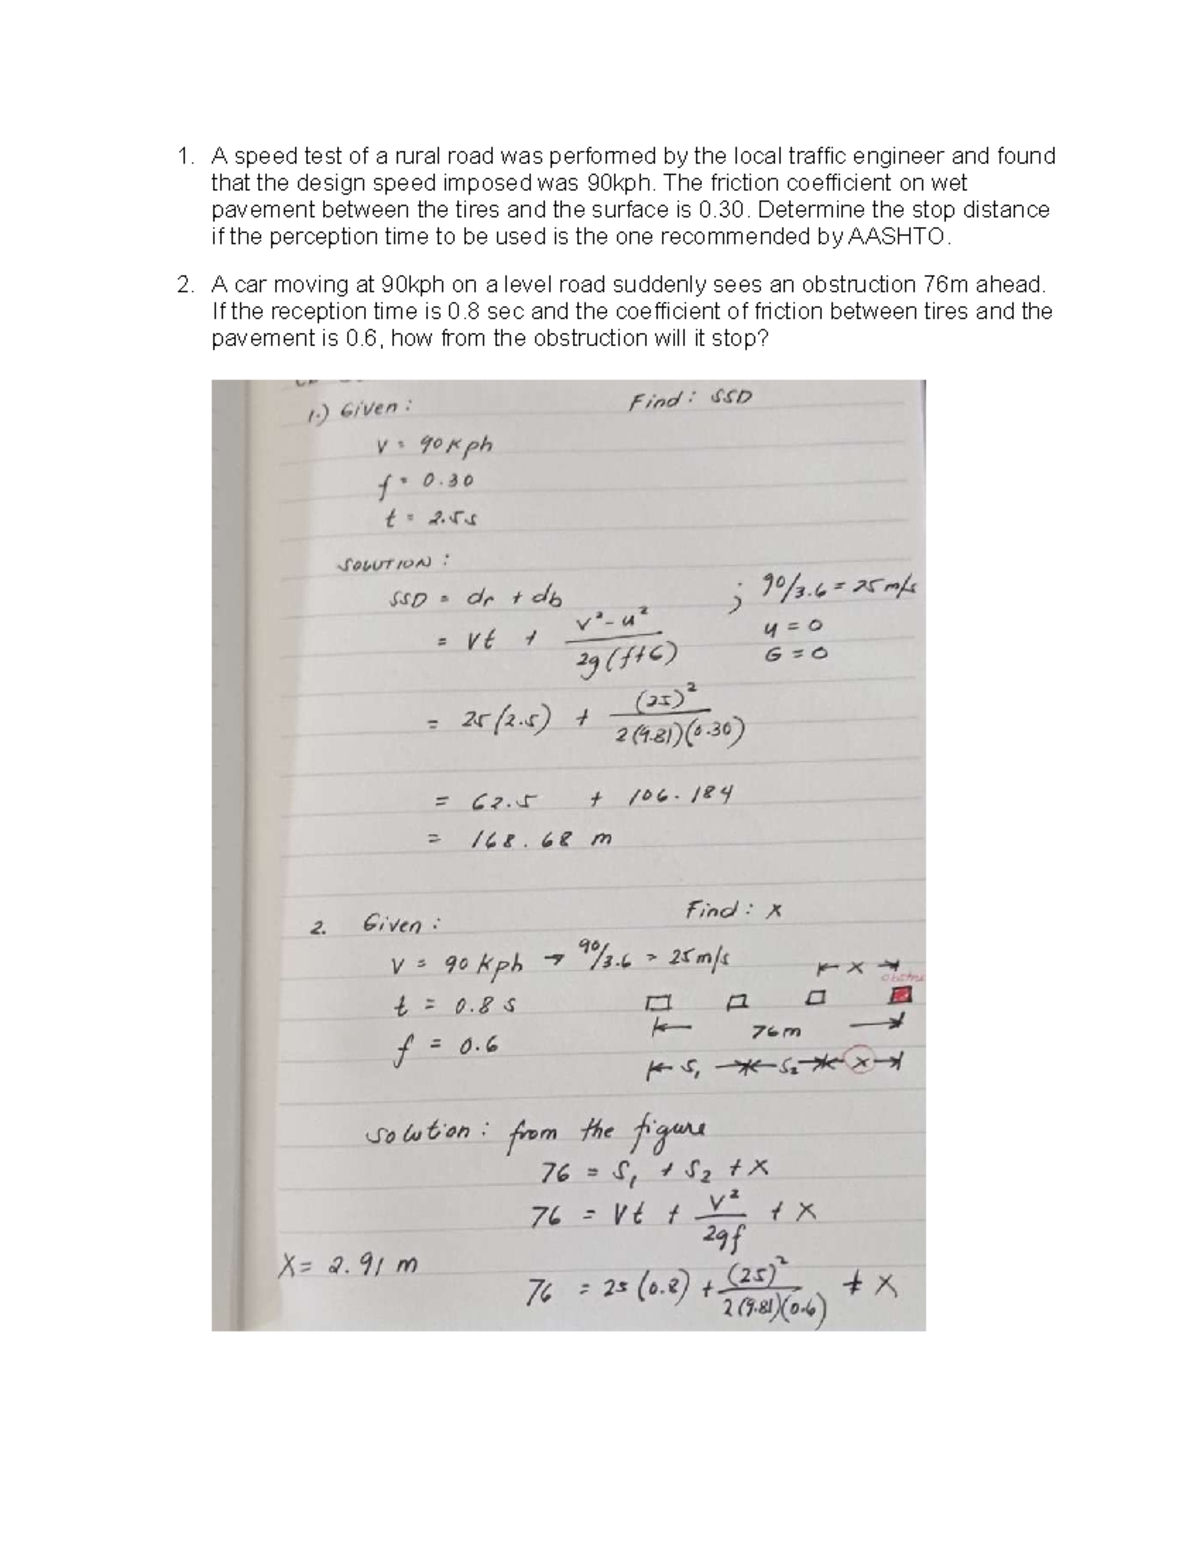 1. A speed test of a rural road was performed by the local traffic engineer and found
that the design speed imposed was 90kph. The friction coefficient on wet
pavement between the tires and the surface is 0.30. Determine the stop distance
if the perception time to be used is the one recommended by AASHTO.
2. A car moving at 90kph on a level road suddenly sees an obstruction 76m ahead.
If the reception time is 0.8 sec and the coefficient of friction between tires and the
pavement is 0.6, how from the obstruction will it stop?
1.) Given: Find: SSD
V = 90kph
f = 0.30
t = 2.5s
SOLUTION:
SSD = dr + db ; 90/3.6 = 25 m/s
= Vt + (v² - u²) / 2g(f+G) u = 0
G = 0
= 25(2.5) + (25)² / 2(9.81)(0.30)
= 62.5 + 106.184
= 168.68 m
2. Given: Find: x
V = 90 kph → 90/3.6 = 25 m/s
x
t = 0.8 s
f = 0.6
76m
S₁ S₂ x
Solution: from the figure
76 = S₁ + S₂ + x
76 = Vt + V² / 2gf + x
X = 2.91 m
76 = 25(0.8) + (25)² / 2(9.81)(0.6) + x